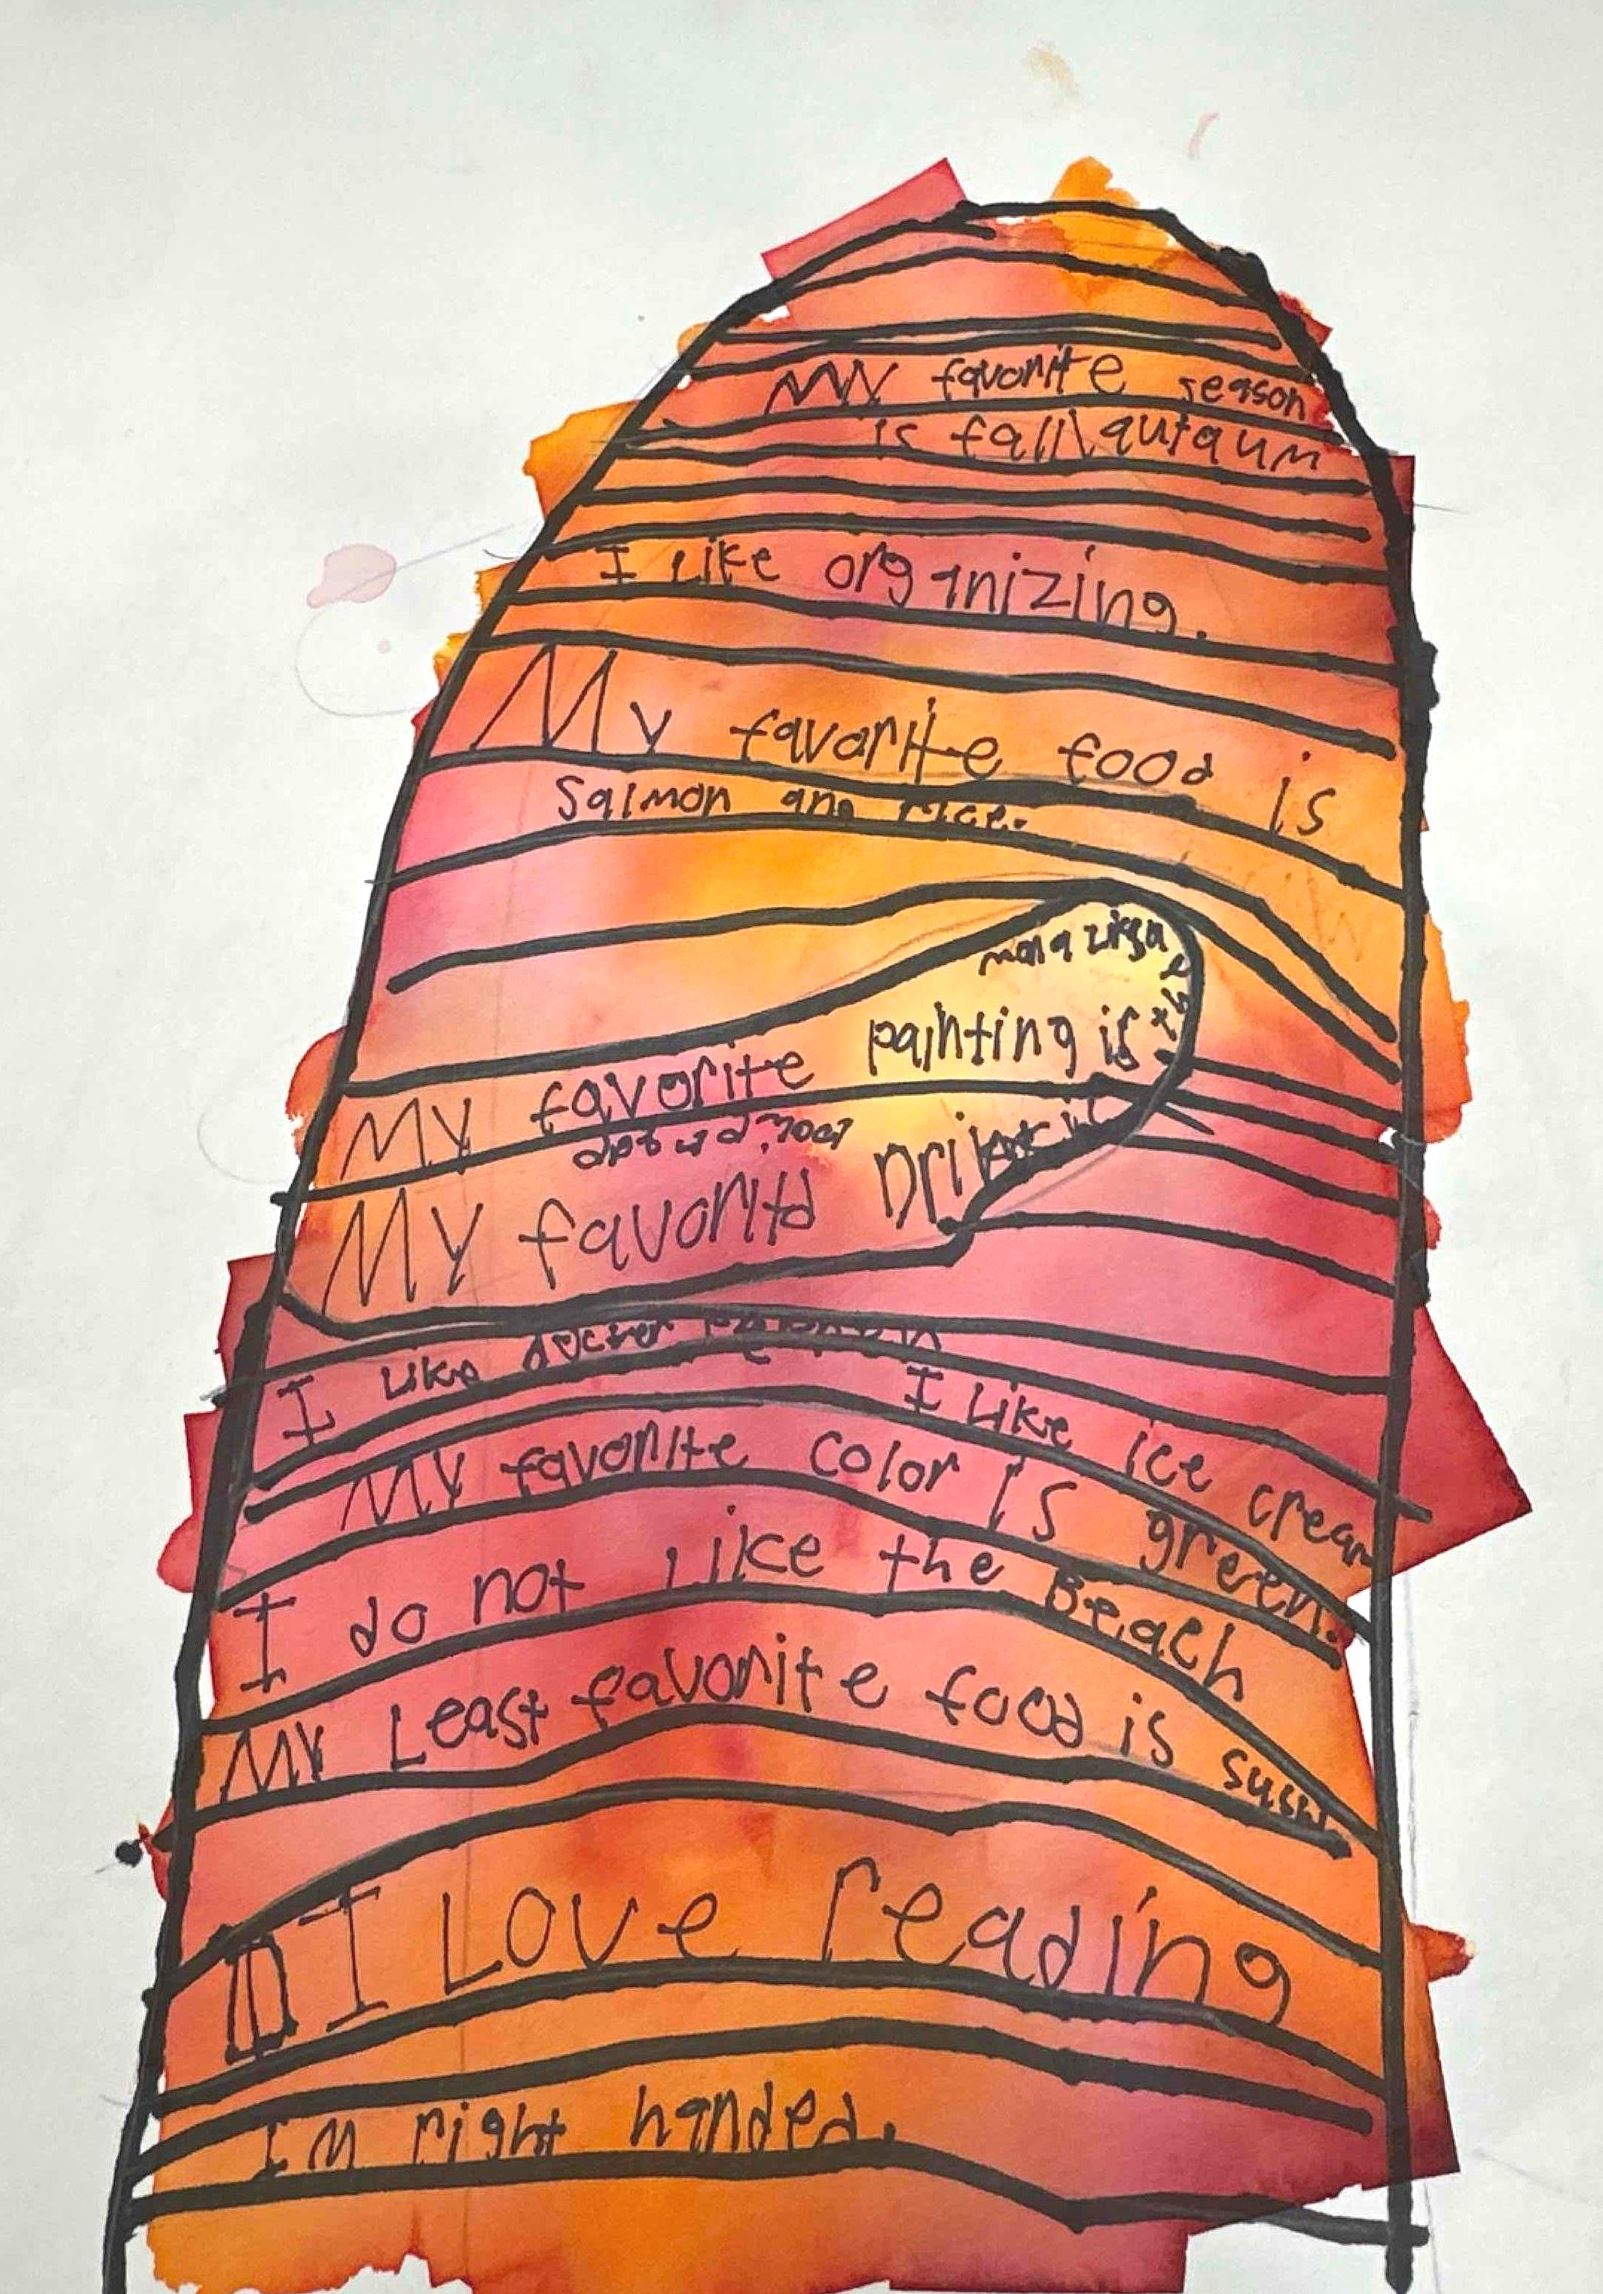 My favorite season
is fall\autaum
I like organizing.
My favorite food is
Salmon and rice.
My favorite painting is
My favorite Drink is
I like
I like ice cream
My favorite color is green.
I do not like the Beach
My Least favorite food is
I Love reading
I'm right handed.